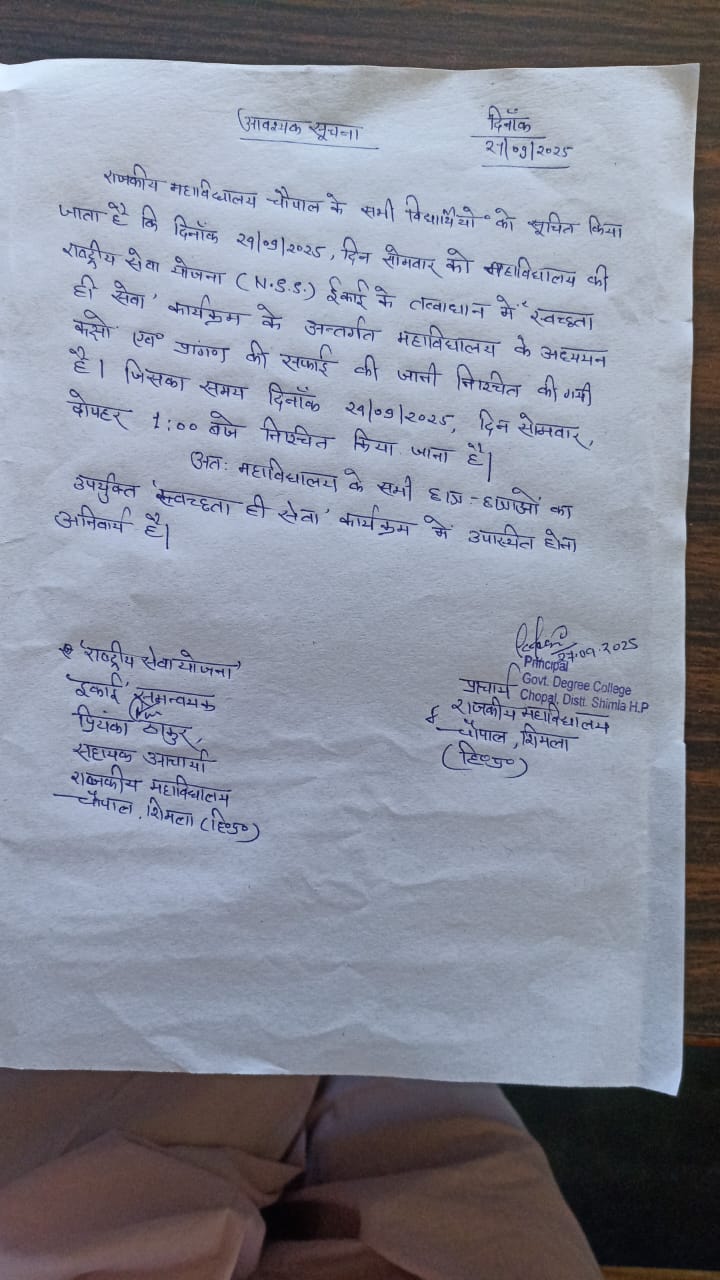 आवश्यक सूचना
दिनाँक
27/09/2025
राजकीय महाविधालय चौपाल के सभी विद्यार्थियों को सूचित किया
जाता है कि दिनाँक 29/09/2025, दिन सोमवार को महाविधालय की
राष्ट्रीय सेवा योजना (N.S.S.) ईकाई के तत्वाधान में 'स्वच्छता
ही सेवा' कार्यक्रम के अन्तर्गत महाविधालय के अध्ययन
कक्षों एवं प्रांगण की सफाई की जानी निश्चित की गयी
है। जिसका समय दिनाँक 29/09/2025, दिन सोमवार,
दोपहर 1:00 बजे निश्चित किया जाना है।
अत: महाविधालय के सभी छात्र-छात्राओं का
उपर्युक्त 'स्वच्छता ही सेवा' कार्यक्रम में उपस्थित होना
अनिवार्य है।
'राष्ट्रीय सेवा योजना'
ईकाई समन्वयक
प्रियंका ठाकुर,
सहायक आचार्या
राजकीय महाविधालय
चौपाल, शिमला (हि०प्र०)
27.09.2025
Principal
Govt. Degree College
Chopal, Distt. Shimla H.P
प्राचार्य
राजकीय महाविधालय
चौपाल, शिमला
(हि०प्र०)